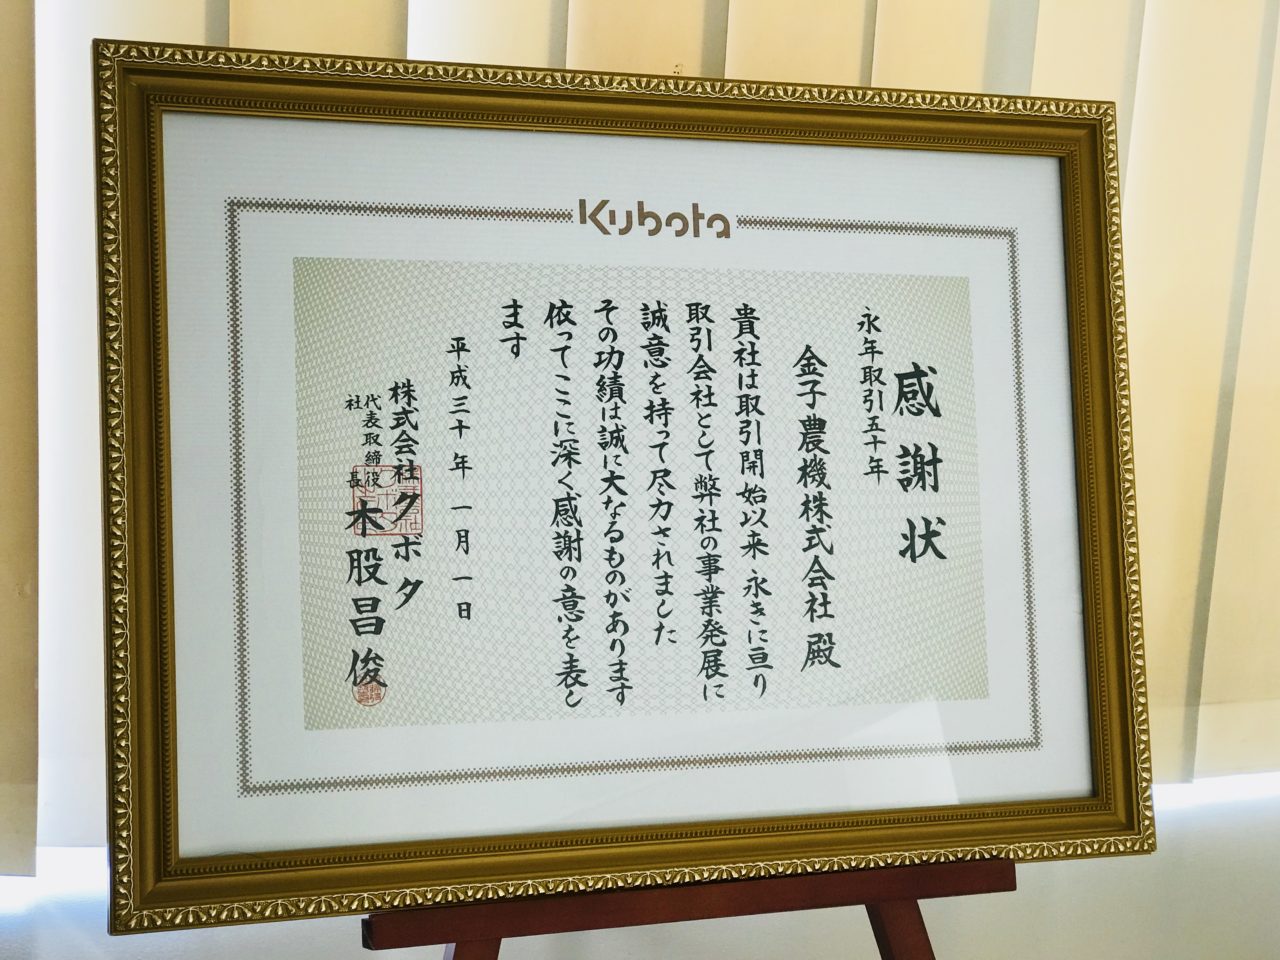 Kubota
感謝状
永年取引五十年
金子農機株式会社 殿
貴社は取引開始以来 永きに亘り
取引会社として弊社の事業発展に
誠意を持って尽力されました
その功績は誠に大なるものがあります
依ってここに深く感謝の意を表し
ます
平成三十年 一月 一日
株式会社クボタ
代表取締役
社長
木股昌俊